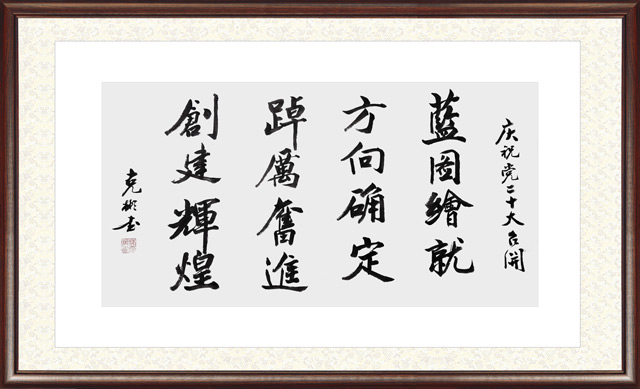 庆祝党二十大召開
藍图繪就
方向确定
踔厲奮進
創建輝煌
克彬书